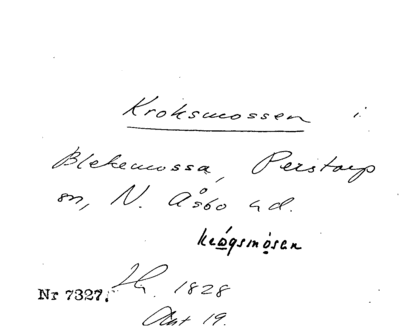 Kroksmossen i
Blekemossa, Perstorp
sn, N. Åsbo hd.
krogsmosen
Nr 7327. 1828
Akt 19.